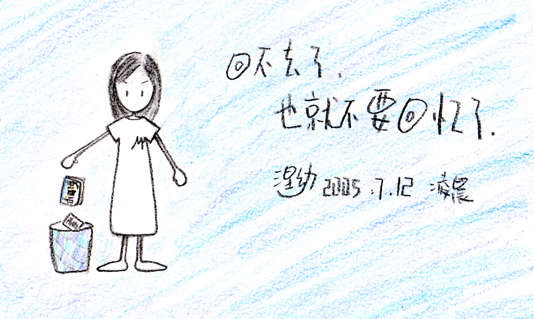 回不去了.
也就不要回忆了.
涅幼 2005.7.12 凌晨